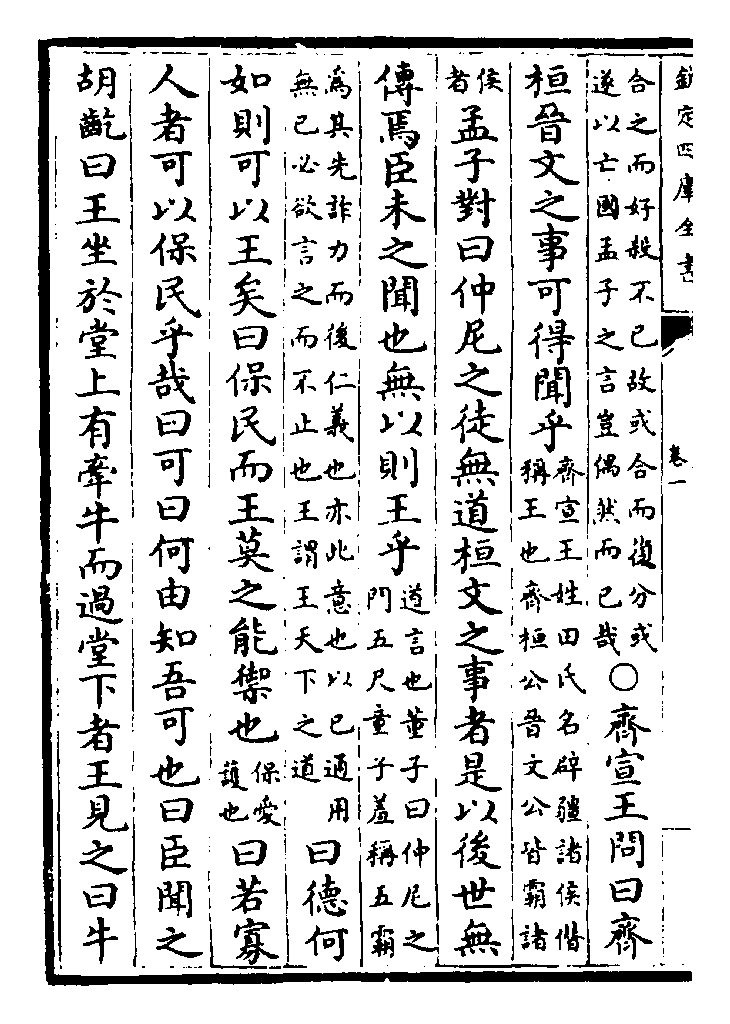 欽定四庫全書
卷一
合之而好殺不已故或合而復分或
遂以亡國孟子之言豈偶然而已哉
○齊宣王問曰齊
桓晉文之事可得聞乎
齊宣王姓田氏名辟疆諸侯僭
稱王也齊桓公晉文公皆霸諸
侯
者
孟子對曰仲尼之徒無道桓文之事者是以後世無
傳焉臣未之聞也無以則王乎
道言也董子曰仲尼之
門五尺童子羞稱五霸
為其先詐力而後仁義也亦此意也以已通用
無已必欲言之而不止也王謂王天下之道
曰德何
如則可以王矣曰保民而王莫之能禦也
保愛
護也
曰若寡
人者可以保民乎哉曰可曰何由知吾可也曰臣聞之
胡齕曰王坐於堂上有牽牛而過堂下者王見之曰牛